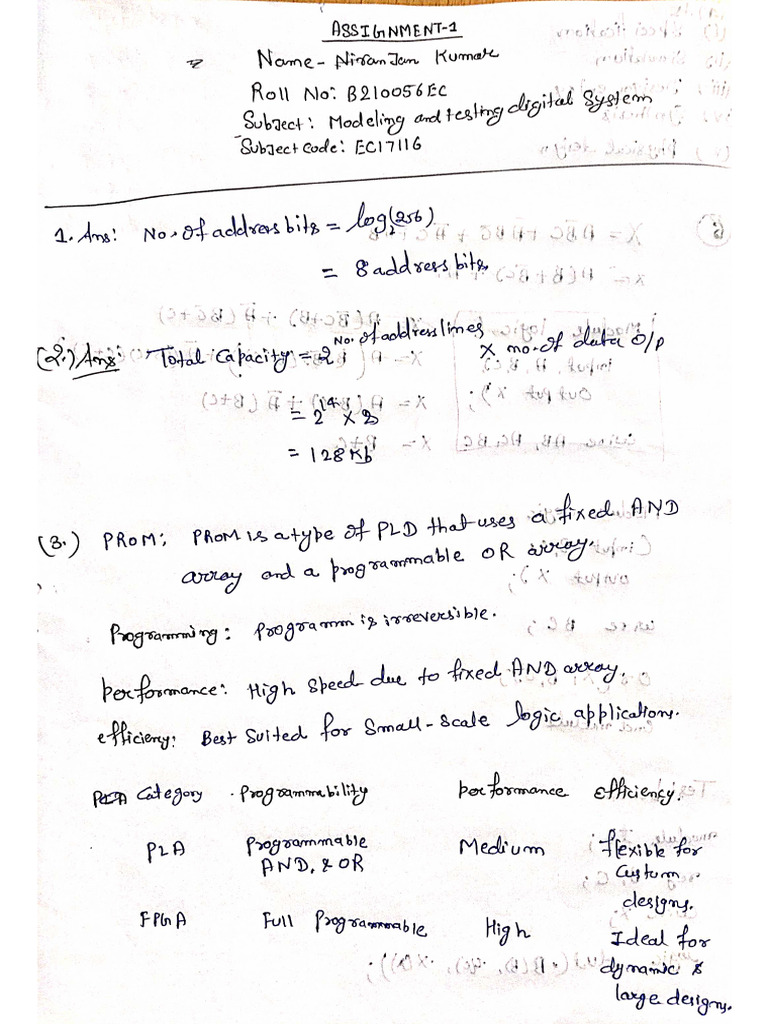 ASSIGNMENT-1
Name - Niranjan Kumar
Roll No: B210056EC
Subject: Modeling and testing digital System
Subject code: EC17116
1. Ans: No. of address bits = log₂(256)
= 8 address bits
(2.) Ans: Total Capacity = 2^No. of address lines × no. of data o/p
= 2^14 × 8
= 128 Kb
(3.) PROM: PROM is a type of PLD that uses a fixed AND
array and a programmable OR array.
Programming: Programm is irreversible.
performance: High speed due to fixed AND array.
efficiency: Best Suited for Small-scale logic application.
Category Programmability performance efficiency.
PLA Programmable Medium flexible for
AND, & OR custom
designs.
FPGA Full Programmable High Ideal for
dynamic &
large designs.